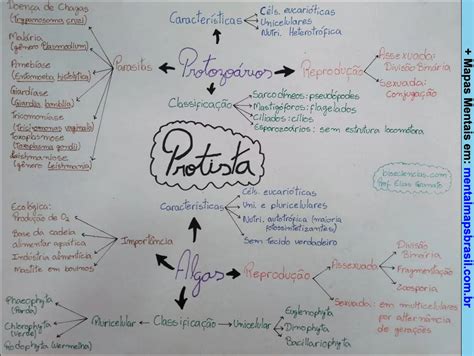 Doença de Chagas
(Trypanosoma cruzi)
Malária
(gênero Plasmodium)
Amebíase
(Entamoeba histolytica)
Giardíase
(Giardia lamblia)
Tricomoníase
(Trichomonas vaginalis)
Toxoplasmose
(Toxoplasma gondii)
Leishmaniose
(gênero Leishmania)
Parasitas
Protozoários
Características
Céls. eucarióticas
Unicelulares
Nutri. Heterotrófica
Reprodução
Assexuada:
Divisão Binária
Sexuada:
Conjugação
Classificação
Sarcodíneos: pseudópodes
Mastigóforos: flagelados
Ciliados: cílios
Esporozoários: sem estrutura locomotora
Protista
bioexcelencias.com
Prof. Elias
Características
Céls. eucarióticas
Uni. e pluricelulares
Nutri. autotrófica (maioria
fotossintetizantes)
Sem tecido verdadeiro
Algas
Importância
Ecológica:
Produção de O2
Base da cadeia
alimentar aquática
Indústria alimentícia
Mastite em bovinos
Reprodução
Assexuada
Divisão
Binária
Fragmentação
Zoosporia
Sexuada: em multicelulares
por alternância
de gerações
Classificação
Pluricelular
Phaeophyta
(Parda)
Chlorophyta
(Verde)
Rodophyta (Vermelha)
Unicelular
Euglenophyta
Dinophyta
Bacillariophyta
+ Mapas Mentais em: mentalmapsbrasil.com.br